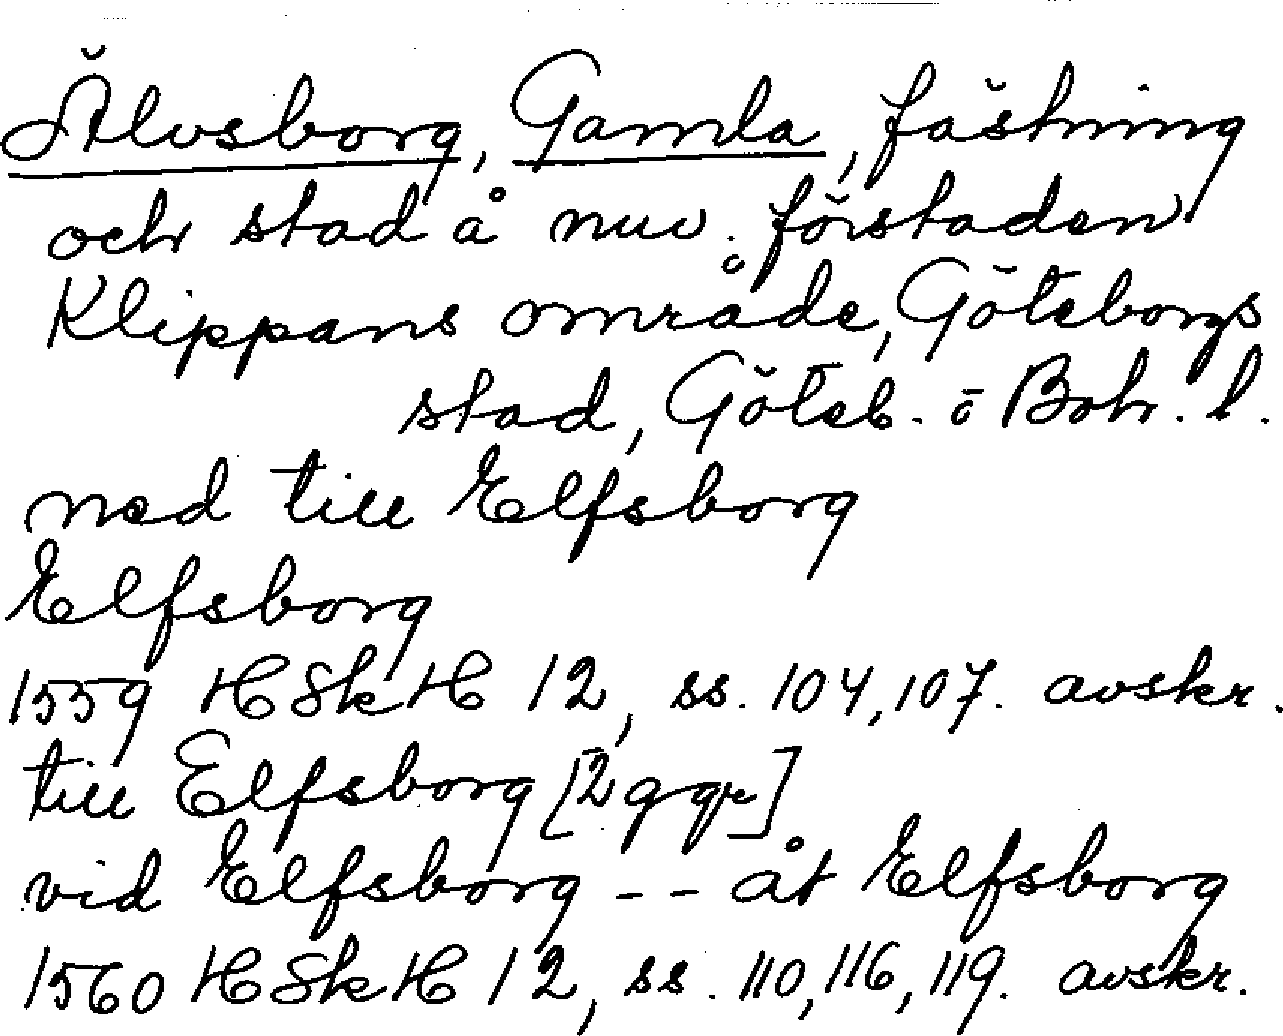 Älvsborg, Gamla, fästning
och stad å nuv. förstaden
Klippans område, Göteborgs
stad, Göteb. o Boh. l.
ned till Elfsborg
Elfsborg
1559 HSkH 12, ss. 104, 107. avskr.
till Elfsborg [2 ggr]
vid Elfsborg -- åt Elfsborg
1560 HSkH 12, ss. 110, 116, 119. avskr.